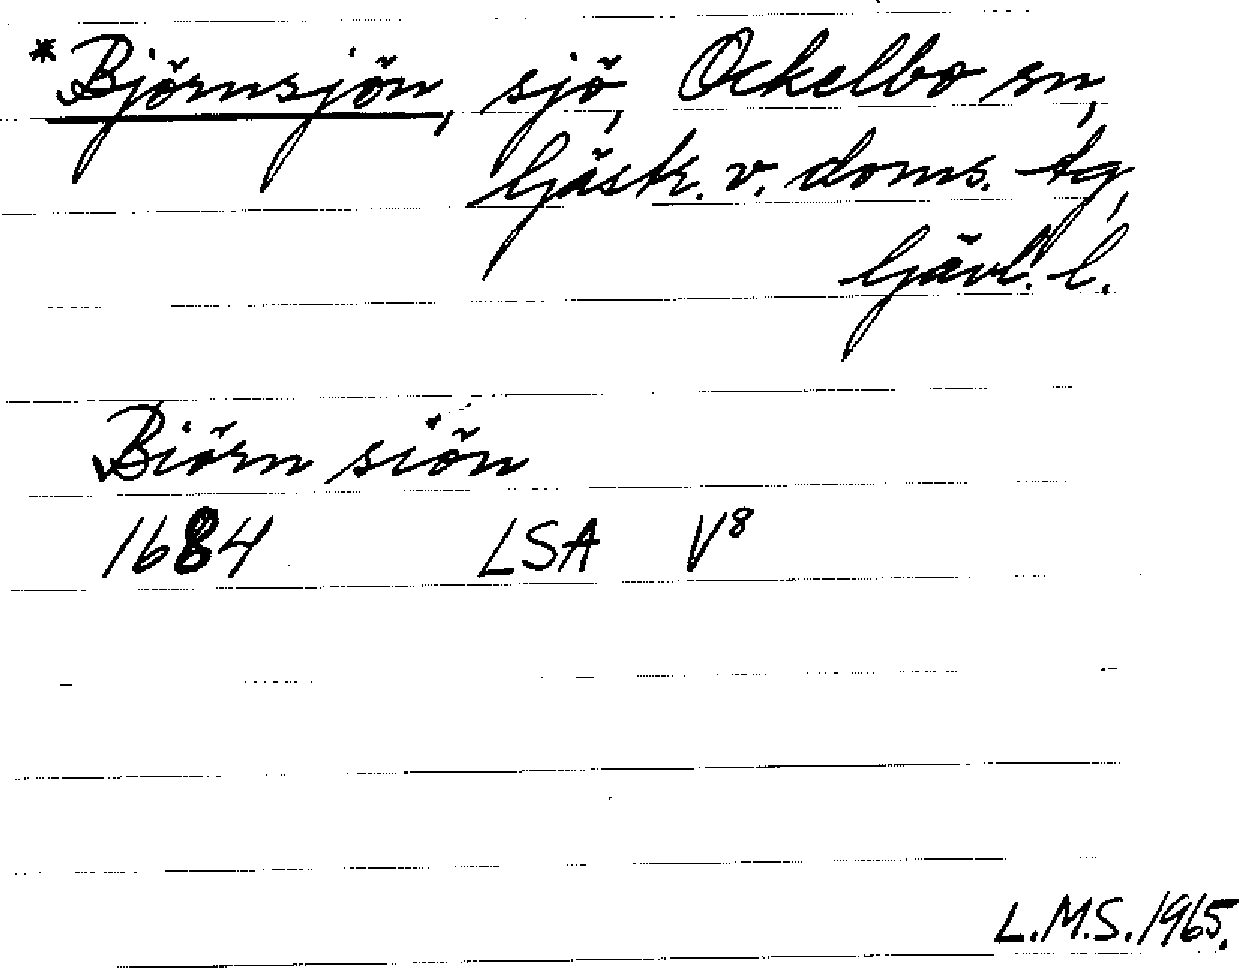 *Björnsjön, sjö, Ockelbo sn,
Gästr. v. doms. tg,
Gävl. l.
Biörn siön
1684 LSA V8
L.M.S. 1965.